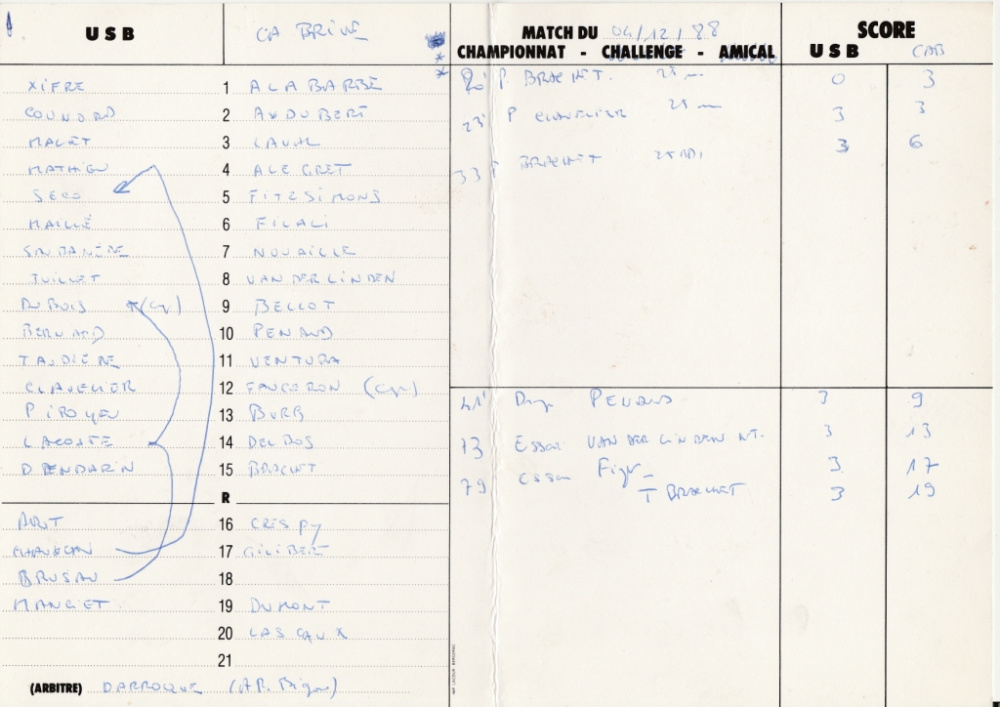 USB CA BRIVE
MATCH DU 04/12/88
CHAMPIONNAT - CHALLENGE - AMICAL
SCORE
USB CAB
XIFRE 1 ALABARBE
COUNORD 2 AUDUBERT
MALET 3 LAVAL
MATHIEU 4 ALEGRET
SECO 5 FITZSIMONS
MAILLÉ 6 FILALI
7 NOUAILLE
JUILLET 8 VANDERLINDEN
DUBOIS (Cap) 9 BELLOT
BERNARD 10 PENAUD
TAUDIÈRE 11 VENTURA
CLAVELIER 12 FAUGERON (Cap)
PIROYEN 13 BURG
LACOSTE 14 DELBOS
DPENDARIN 15 BRACHET
R
16 CRESPY
17 GILIBERT
BRUSAU 18
MANCIET 19 DUMONT
20 LASCAUX
21
(ARBITRE) DARROQUE
2' P. BRACHET. 25 m 0 3
23' P CLAVELIER 25 m 3 3
33' P BRACHET 25 m 3 6
41' Drop PENAUD 3 9
73 Essai VANDERLINDEN NT. 3 13
79 essai 3 17
T BRACHET 3 19